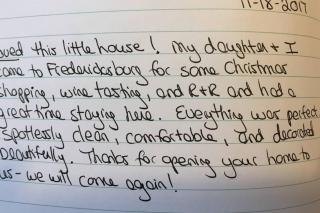 11-18-2017
oved this little house! My daughter + I
came to Fredericksburg for some Christmas
shopping, wine tasting, and R+R and had a
great time staying here. Everything was perfect.
Spotlessly clean, comfortable, and decorated
beautifully. Thanks for opening your home to
us - we will come again!